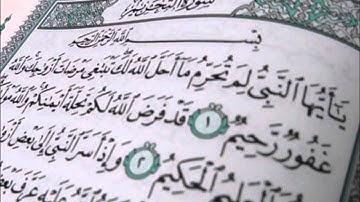 سُورَةُ التَّحْرِيمِ
بِسْمِ اللَّهِ الرَّحْمَٰنِ الرَّحِيمِ
يَا أَيُّهَا النَّبِيُّ لِمَ تُحَرِّمُ مَا أَحَلَّ اللَّهُ لَكَ تَبْتَغِي مَرْضَاتَ أَزْوَاجِكَ وَاللَّهُ
غَفُورٌ رَّحِيمٌ ١ قَدْ فَرَضَ اللَّهُ لَكُمْ تَحِلَّةَ أَيْمَانِكُمْ وَاللَّهُ
الْعَلِيمُ الْحَكِيمُ ٢ وَإِذْ أَسَرَّ النَّبِيُّ إِلَىٰ بَعْضِ
اللَّهُ عَلَيْهِ عَرَّفَ